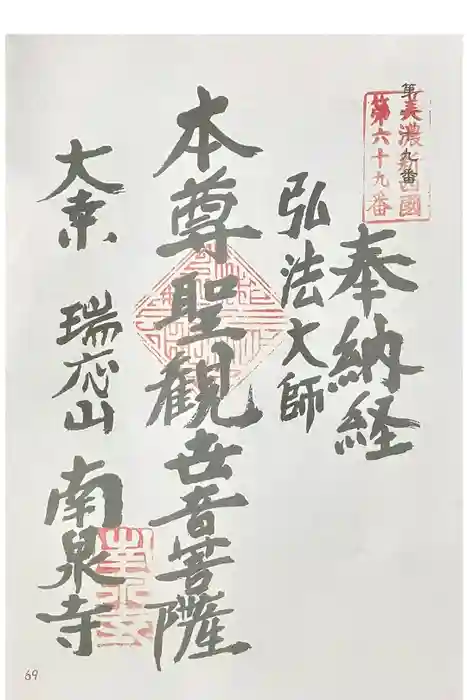 美濃新四國
第六十九番
奉納経
弘法大師
本尊聖観世音菩薩
大桑 瑞応山 南泉寺
69